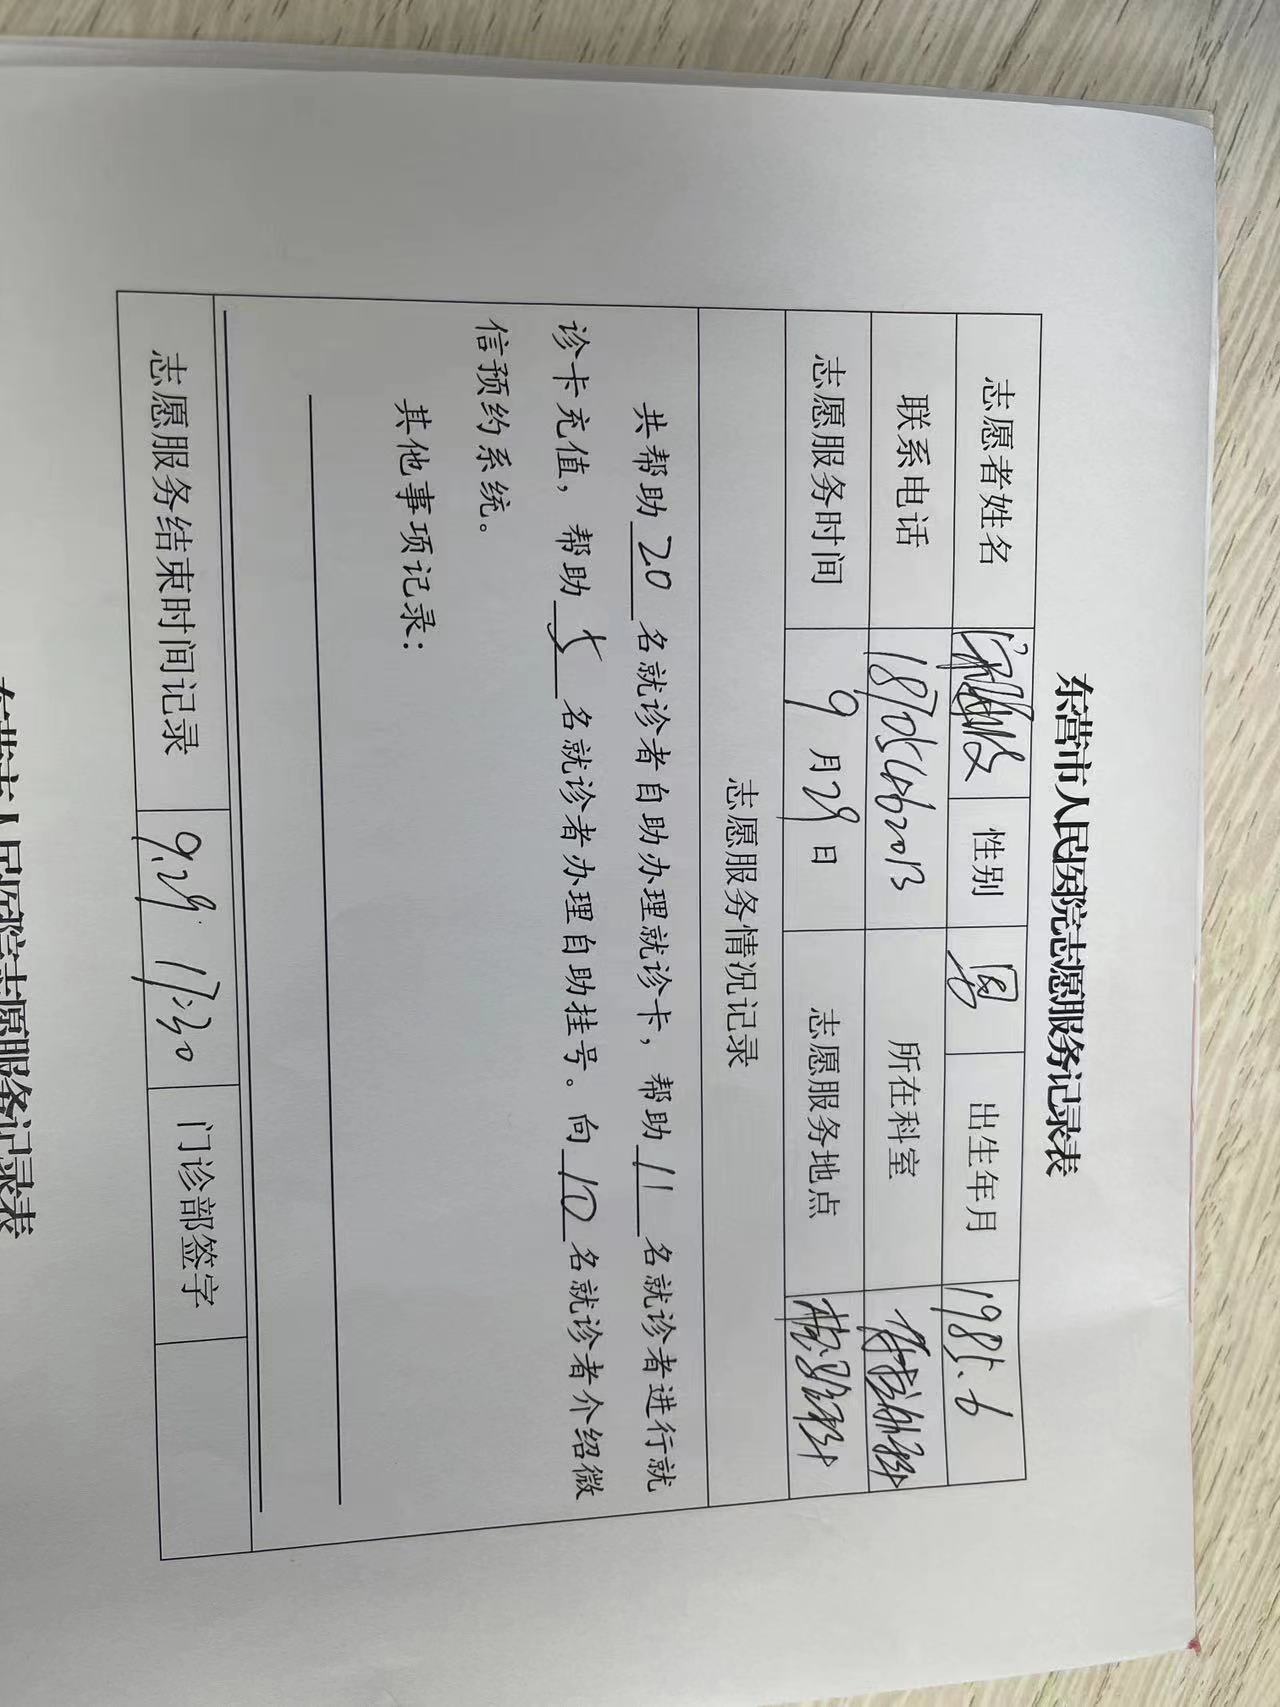 东营市人民医院志愿服务记录表
志愿者姓名 性别 男 出生年月 1985.6
联系电话 所在科室
志愿服务时间 9月29日 志愿服务地点
志愿服务情况记录
共帮助 20 名就诊者自助办理就诊卡，帮助 11 名就诊者进行就
诊卡充值，帮助 5 名就诊者办理自助挂号。向 10 名就诊者介绍微
信预约系统。
其他事项记录：
志愿服务结束时间记录 9.29. 17:30 门诊部签字
东营市人民医院志愿服务记录表